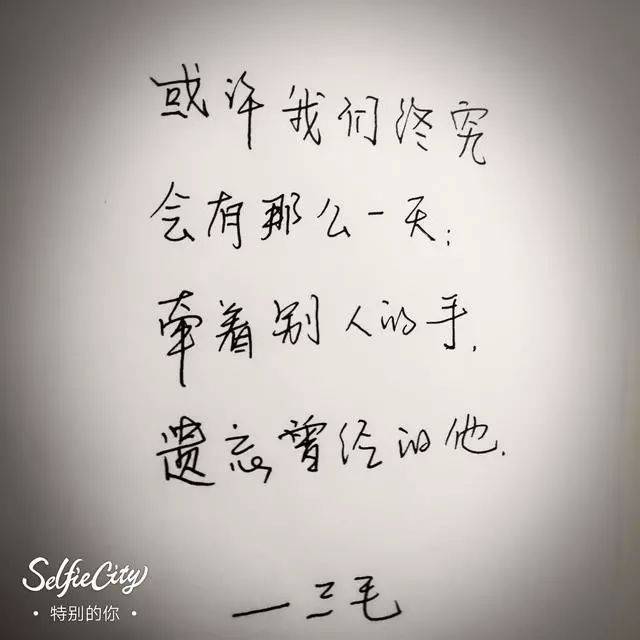 或许我们终究
会有那么一天:
牵着别人的手,
遗忘曾经的他.
—三毛
SelfieCity
·特别的你·